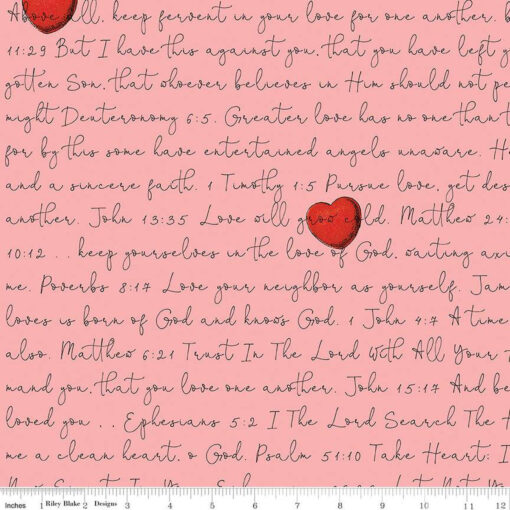 Above all, keep fervent in your love for one another. b
11:29 But I have this against you, that you have left y
gotten Son, that whoever believes in Him should not pe
might Deuteronomy 6:5. Greater love has no one than t
for by this some have entertained angels unaware. H
and a sincere faith. 1 Timothy 1:5 Pursue love, yet des
another. John 13:35 Love will grow cold. Matthew 24:
10:12 . . keep yourselves in the love of God, waiting anxi
me. Poverbs 8:17 Love your neighbor as yourself. Jam
loves is born of God and knows God. 1 John 4:7 A time
also. Matthew 6:21 Trust In The Lord With All Your
mand you, that you love one another. John 15:17 And be
loved you . . Ephesians 5:2 I The Lord Search The H
me a clean heart, o God. Psalm 51:10 Take Heart: I
inches 1 Riley Blake 2 Designs 3 4 5 6 7 8 9 10 11 12